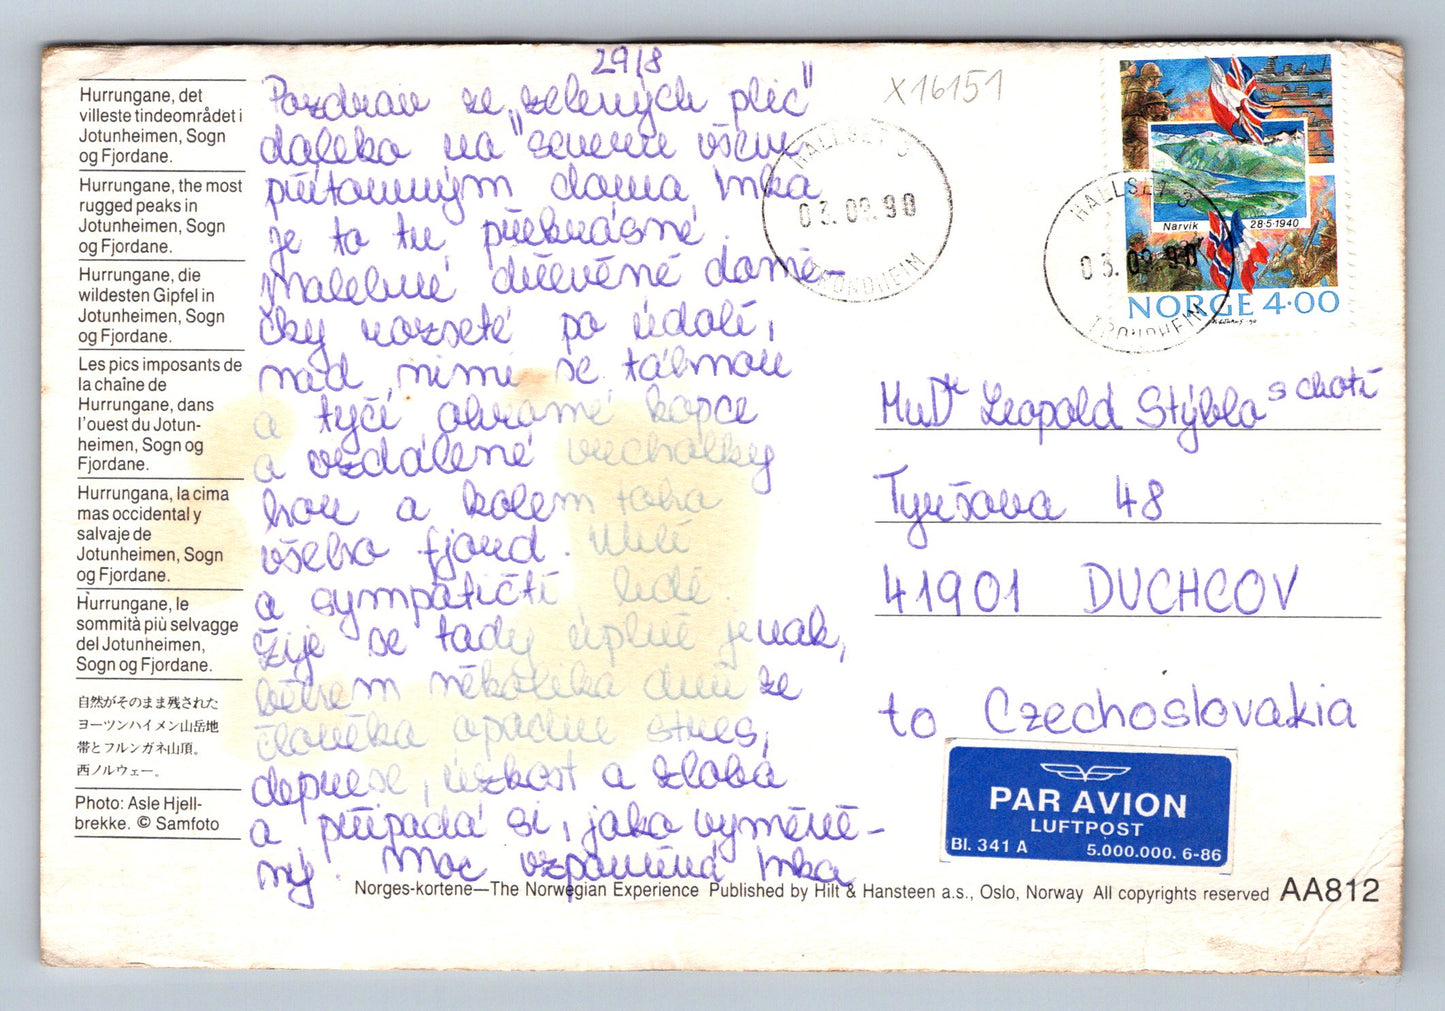 Hurrungane, det
villeste tindeområdet i
Jotunheimen, Sogn
og Fjordane.
Hurrungane, the most
rugged peaks in
Jotunheimen, Sogn
og Fjordane.
Hurrungane, die
wildesten Gipfel in
Jotunheimen, Sogn
og Fjordane.
Les pics imposants de
la chaîne de
Hurrungane, dans
l'ouest du Jotun-
heimen, Sogn og
Fjordane.
Hurrungana, la cima
mas occidental y
salvaje de
Jotunheimen, Sogn
og Fjordane.
Hurrungane, le
sommità più selvagge
del Jotunheimen,
Sogn og Fjordane.
自然がそのまま残された
ヨーツンハイメン山岳地
帯とフルンガネ山頂。
西ノルウェー。
Photo: Asle Hjell-
brekke. © Samfoto
29/8
Pozdrav ze „zelených plic"
daleko na severu všem
přítomným doma Imka
Je to tu překrásné.
Malebné dřevěné domě-
čky rozseté po údolí,
nad nimi se táhnou
a tyčí ohromné kopce
a vzdálené vrcholky
hor a kolem toho
všeho fjord. Milí
a sympatičtí lidé.
Žije se tady úplně jinak,
během několika dní ze
člověka opadne stres,
deprese, úzkost a zloba
a připadá si, jako vyměně-
ný. Moc vzpomíná Imka
X16151
HALLSET S
03.09.90
TRONDHEIM
HALLSET S
03.09.90
TRONDHEIM
Narvik 28·5·1940
NORGE 4·00
MuDr Leopold Stýblo s chotí
Tyršova 48
41901 DUCHCOV
to Czechoslovakia
PAR AVION
LUFTPOST
Bl. 341 A 5.000.000. 6-86
Norges-kortene—The Norwegian Experience Published by Hilt & Hansteen a.s., Oslo, Norway All copyrights reserved AA812